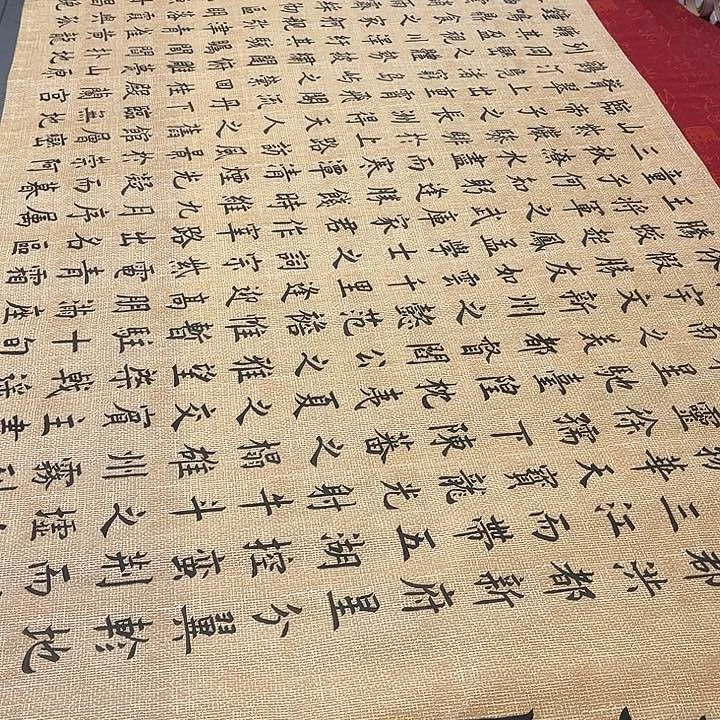 郡洪都新府星分翼軫地
三江而帶五湖控蠻荊而
物華天寶龍光射牛斗之墟
靈徐孺下陳蕃之榻雄州霧列
星馳臺隍枕夷夏之交賓主盡
南之美都督閻公之雅望棨戟遙
宇文新州之懿範襜帷暫駐十旬
休假勝友如雲千里逢迎高朋滿座
騰蛟起鳳孟學士之詞宗紫電青霜
王將軍之武庫家君作宰路出名區
童子何知躬逢勝餞時維九月序屬
三秋潦水盡而寒潭清煙光凝而暮
山紫儼驂騑於上路訪風景於崇阿
臨帝子之長洲得天人之舊館層巒
聳翠上出重霄飛閣流丹下臨無地
鶴汀鳧渚窮島嶼之縈迴桂殿蘭宮
即岡巒之體勢披繡闥俯雕甍山原
其盈視川澤紆其駭矚閭閻撲地
鳴鼎食之家舸艦迷津青雀黃龍